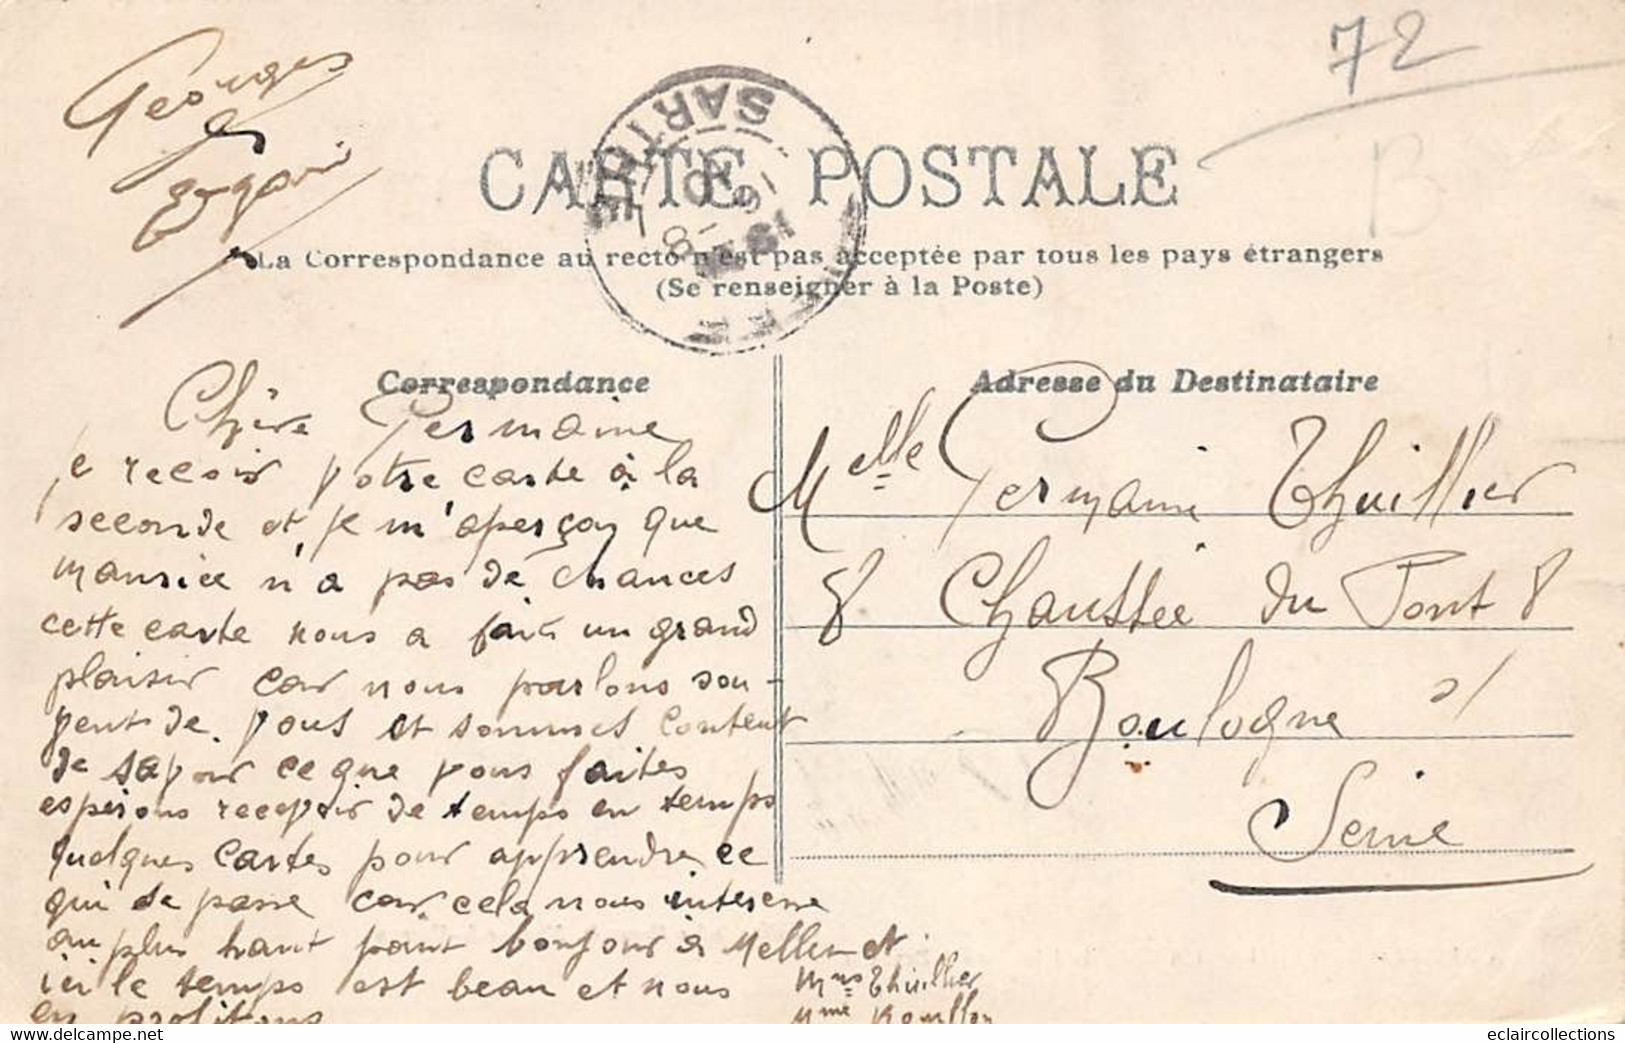 72
B
Georges
SARTHE
CARTE POSTALE
La Correspondance au recto n'est pas acceptée par tous les pays étrangers
(Se renseigner à la Poste)
Correspondance
Adresse du Destinataire
Chère Germaine
je recois votre carte à la
seconde et je m'aperçoy que
maurice n'a pas de chances
cette carte nous a fait un grand
plaisir car nous parlons sou-
vent de vous et sommes content
de savoir ce que vous faites
esperons recevoir de temps en temps
quelques cartes pour apprendre ce
qui se passe car cela nous interesse
au plus haut point bonjour à Melles et
Mme Thuillier
Mme Rouillon
ici le temps est beau et nous
en profitons
Melle Germaine Thuillier
8 Chaussée du Pont 8
Boulogne s/
Seine
eclaircollections